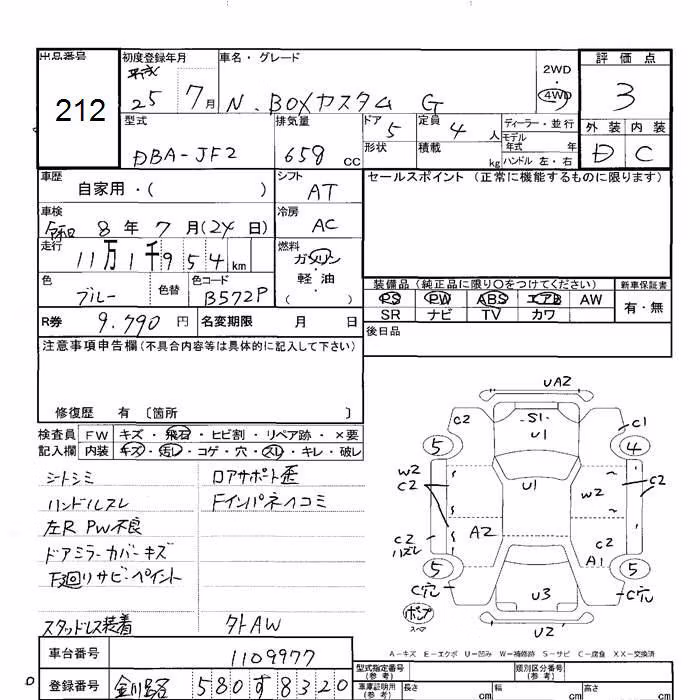 出品番号 初度登録年月 車名・グレード 評価点
212
平成 25 7月 N.BOXカスタム G 2WD 4WD 3
型式 排気量 ドア 5 定員 4人 ディーラー・並行 外装 内装
DBA-JF2 658 cc 形状 積載 kg モデル年式 年 ハンドル 左・右 D C
車歴 自家用・( ) シフト AT セールスポイント (正常に機能するものに限ります)
車検 令和 8年 7月(24日) 冷房 AC
走行 11万1千954km 燃料 ガソリン 軽・油 ( )
色 ブルー 色替 色コード B572P
装備品 (純正品に限り○をつけてください) 新車保証書
PS PW ABS エアB AW 有・無
SR ナビ TV カワ
R券 9.790円 名変期限 月 日 後日品
注意事項申告欄(不具合内容等は具体的に記入して下さい)
修復歴 有 〔箇所 〕
検査員 FW キズ・飛石・ヒビ割・リペア跡・×要
記入欄 内装 キズ・汚レ・コゲ・穴・スレ・キレ・破レ
シートシミ ロアサポート歪
ハンドルスレ Fインパネヘコミ
左R PW不良
ドアミラーカバーキズ
下廻リサビ・ペイント
スタッドレス装着 タトAW
UA2
C2 S1 C1
U1
5 4
W2 C2 U1 W2 C2
C2 ハズレ A2 C2
A1
5 5
C穴 U3 C穴
ポンプ スペア
U2
A−キズ E−エクボ U−凹み W−補修跡 S−サビ C−腐食 XX−交換済
車台番号 1109977
登録番号 580す8320
型式指定番号(参考) 類別区分番号(参考)
車庫証明用(参考) 長さ cm 幅 cm 高さ cm